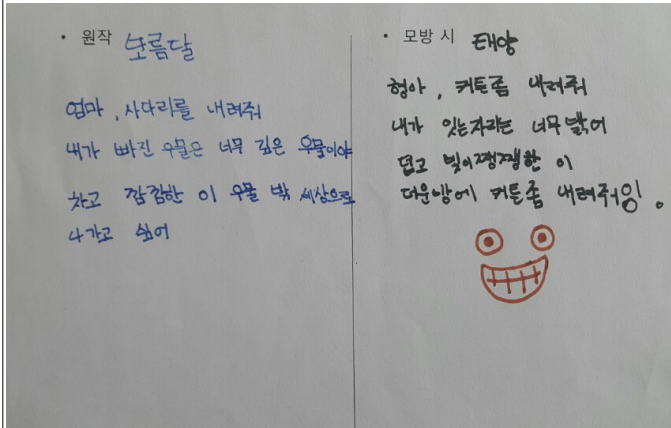 • 원작 보름달
엄마, 사다리를 내려줘
내가 빠진 우물은 너무 깊은 우물이야
차고 깜깜한 이 우물 밖 세상으로
나가고 싶어
• 모방 시 태양
형아, 커튼좀 내려줘
내가 있는자리는 너무 밝어
덥고 빛이쨍쨍한 이
더운방에 커튼좀 내려줘잉.